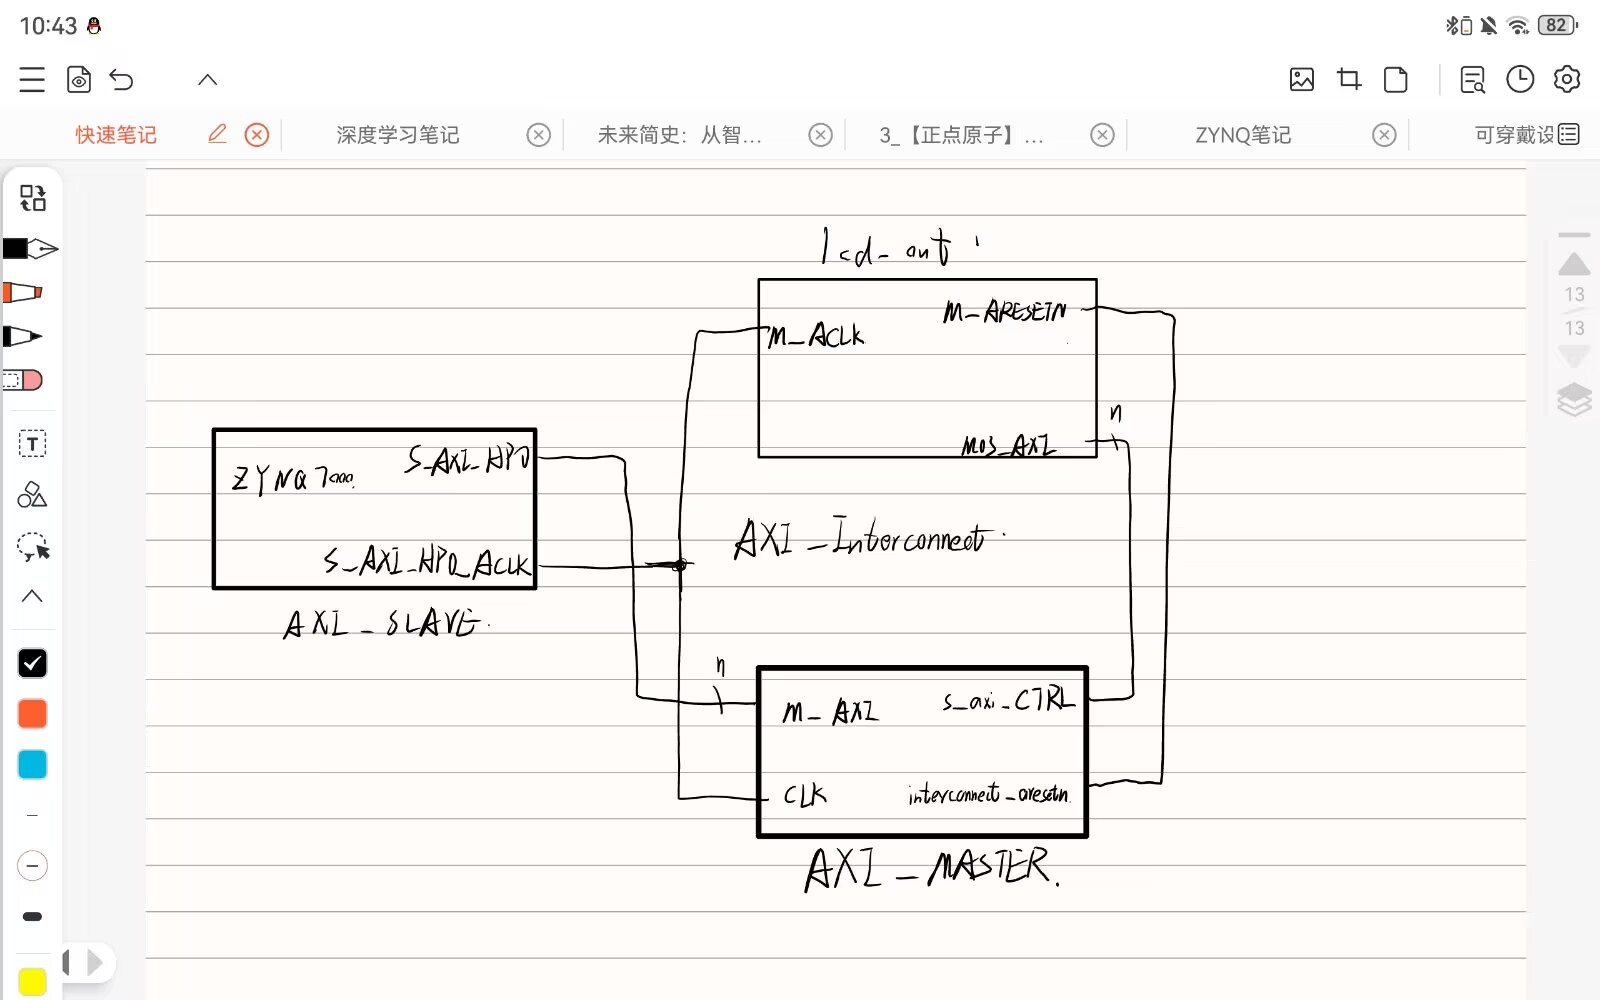 10:43
82
快速笔记
深度学习笔记
未来简史：从智...
3_【正点原子】...
ZYNQ笔记
可穿戴设
T
13
13
lcd_out
M_ARESETN
M_ACLK
n
M03_AXI
ZYNQ7000
S_AXI_HP0
S_AXI_HP0_ACLK
AXI_SLAVE.
AXI_Interconnect.
n
M_AXI
s_axi_CTRL
CLK
interconnect_aresetn.
AXI_MASTER.